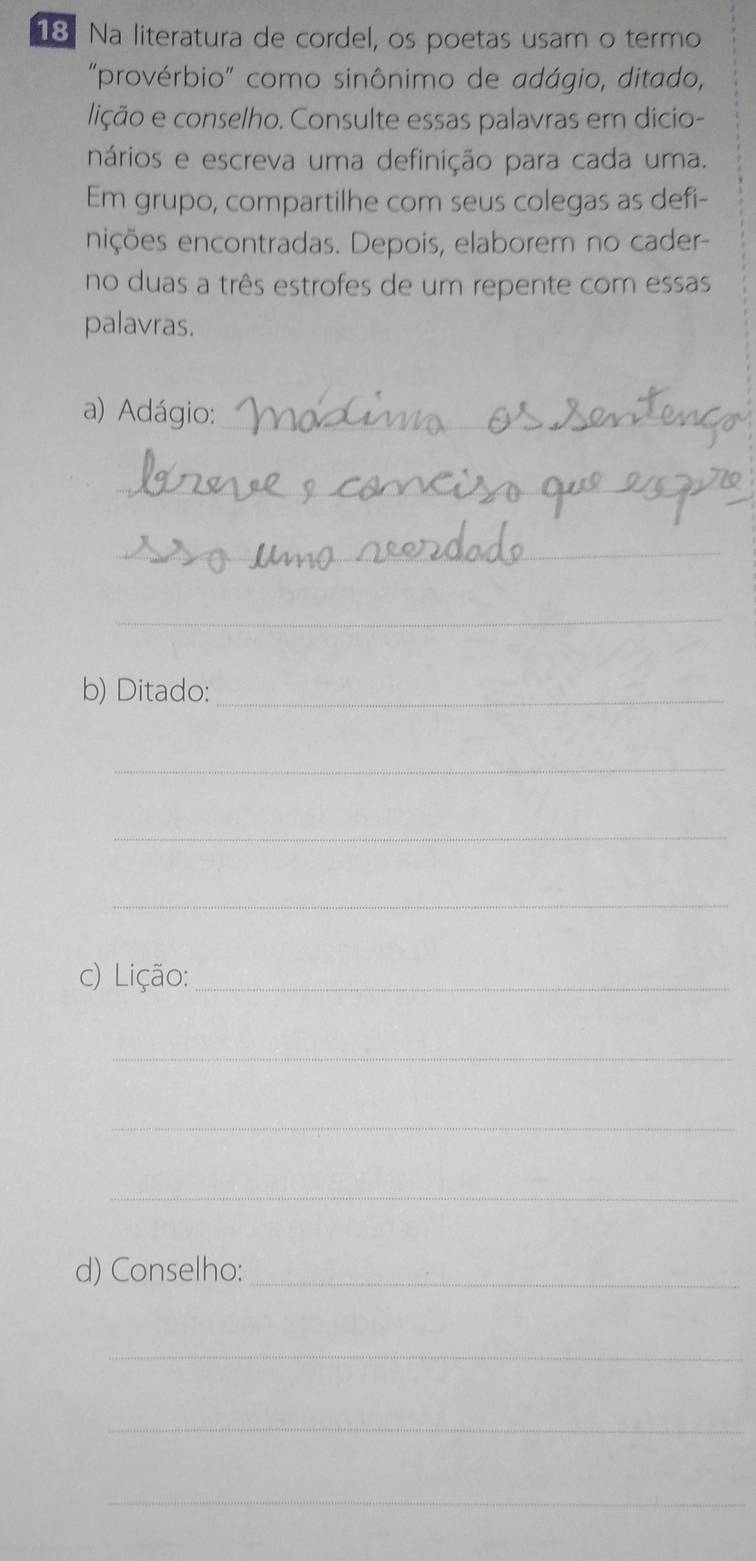 18 Na literatura de cordel, os poetas usam o termo
"provérbio" como sinônimo de adágio, ditado,
lição e conselho. Consulte essas palavras em dicio-
nários e escreva uma definição para cada uma.
Em grupo, compartilhe com seus colegas as defi-
nições encontradas. Depois, elaborem no cader-
no duas a três estrofes de um repente com essas
palavras.
a) Adágio: máxima os sentença
breve e conciso que expre
sso uma verdade
b) Ditado:
c) Lição:
d) Conselho: